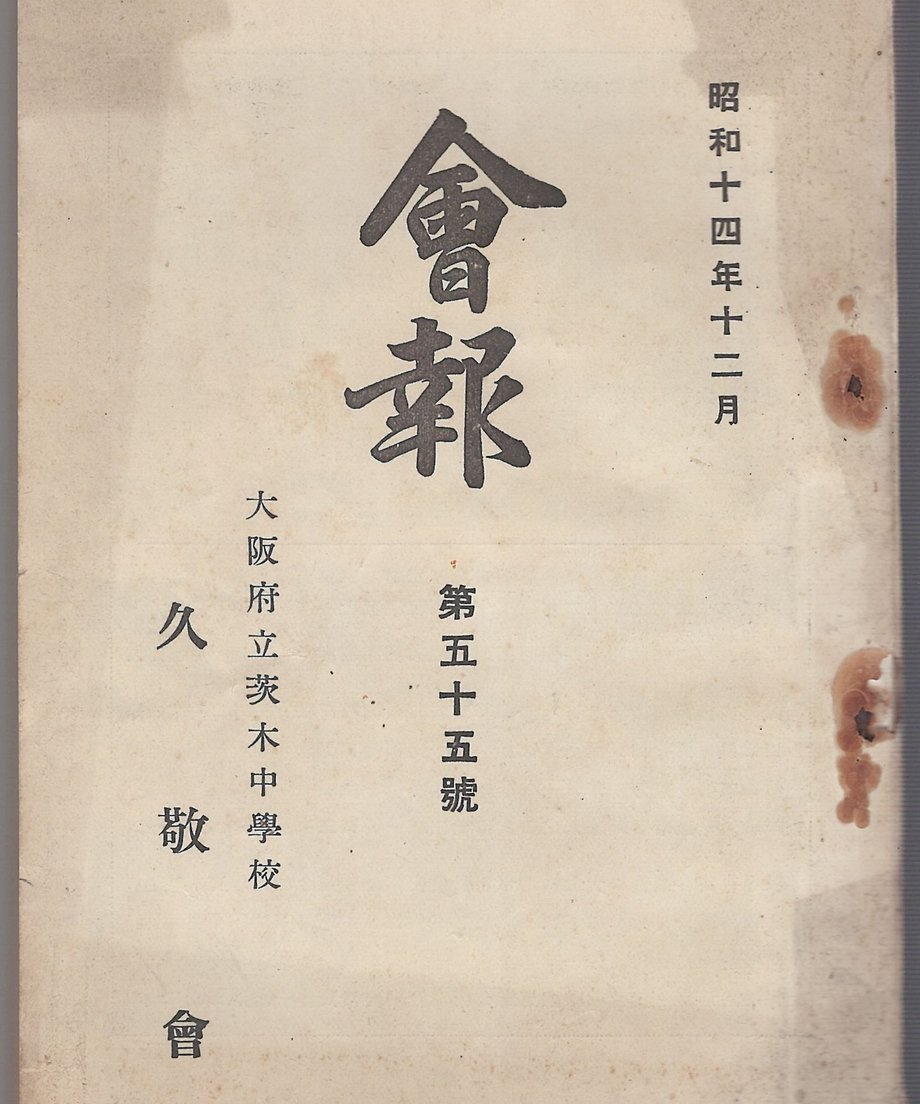 昭和十四年十二月
會報
第五十五號
大阪府立茨木中學校
久敬會